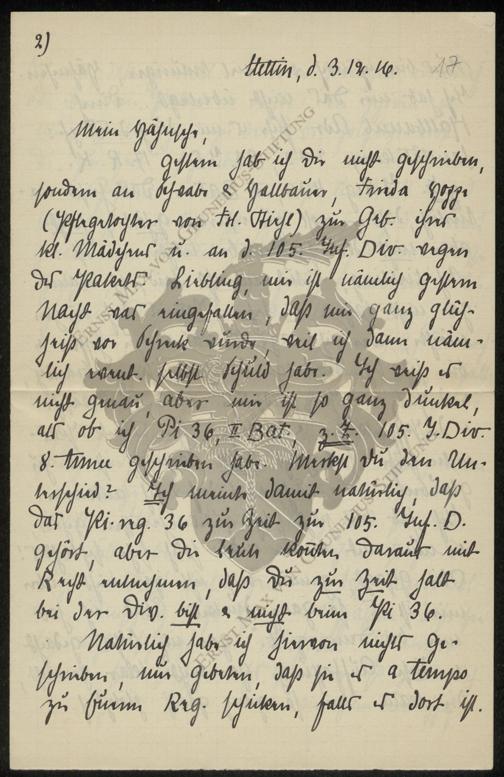 2)
Stettin, d. 3.12.16. 17
Mein Hähnsche,
gestern hab ich Dir nicht geschrieben,
sondern an Schwabe & Hallbauer, Frieda Hoppe
(Pflegetochter von Frl. Stiehl) zur Geb. ihres
kl. Mädchens u. an d. 105. Inf. Div. wegen
des Pakets. Liebling, mir ist nämlich gestern
Nacht was eingefallen, daß mir ganz glüh-
heiß vor Schreck wurde, weil ich dann näm-
lich event. selbst Schuld habe. Ich weiß es
nicht genau, aber mir ist so ganz dunkel,
als ob ich Pi 36, II Bat., z. Z. 105. I. Div.
8. Armee geschrieben habe. Merkst Du den Un-
terschied? Ich meinte damit natürlich, daß
das Pi. reg. 36 zur Zeit zur 105. Inf. D.
gehört, aber die Leute konnten daraus mit
Recht entnehmen, daß Du zur Zeit halt
bei der Div. bist & nicht beim Pi 36.
Natürlich habe ich hiervon nichts ge-
schrieben, nur gebeten, daß sie es a tempo
zu Eurem Reg. schicken, falls es dort ist.
ERNST MAX VON GRUNELIUS-STIFTUNG
ERNST MAX VON GRUNELIUS-STIFTUNG